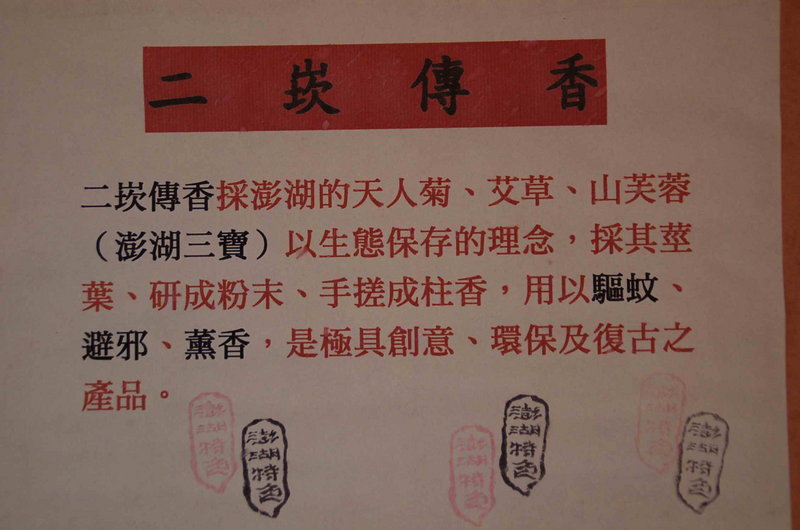 二崁傳香
二崁傳香採澎湖的天人菊、艾草、山芙蓉
（澎湖三寶）以生態保存的理念，採其莖
葉、研成粉末、手搓成柱香，用以驅蚊、
避邪、薰香，是極具創意、環保及復古之
產品。
澎湖特色
澎湖特色
澎湖特色
澎湖特色
澎湖特色
澎湖特色